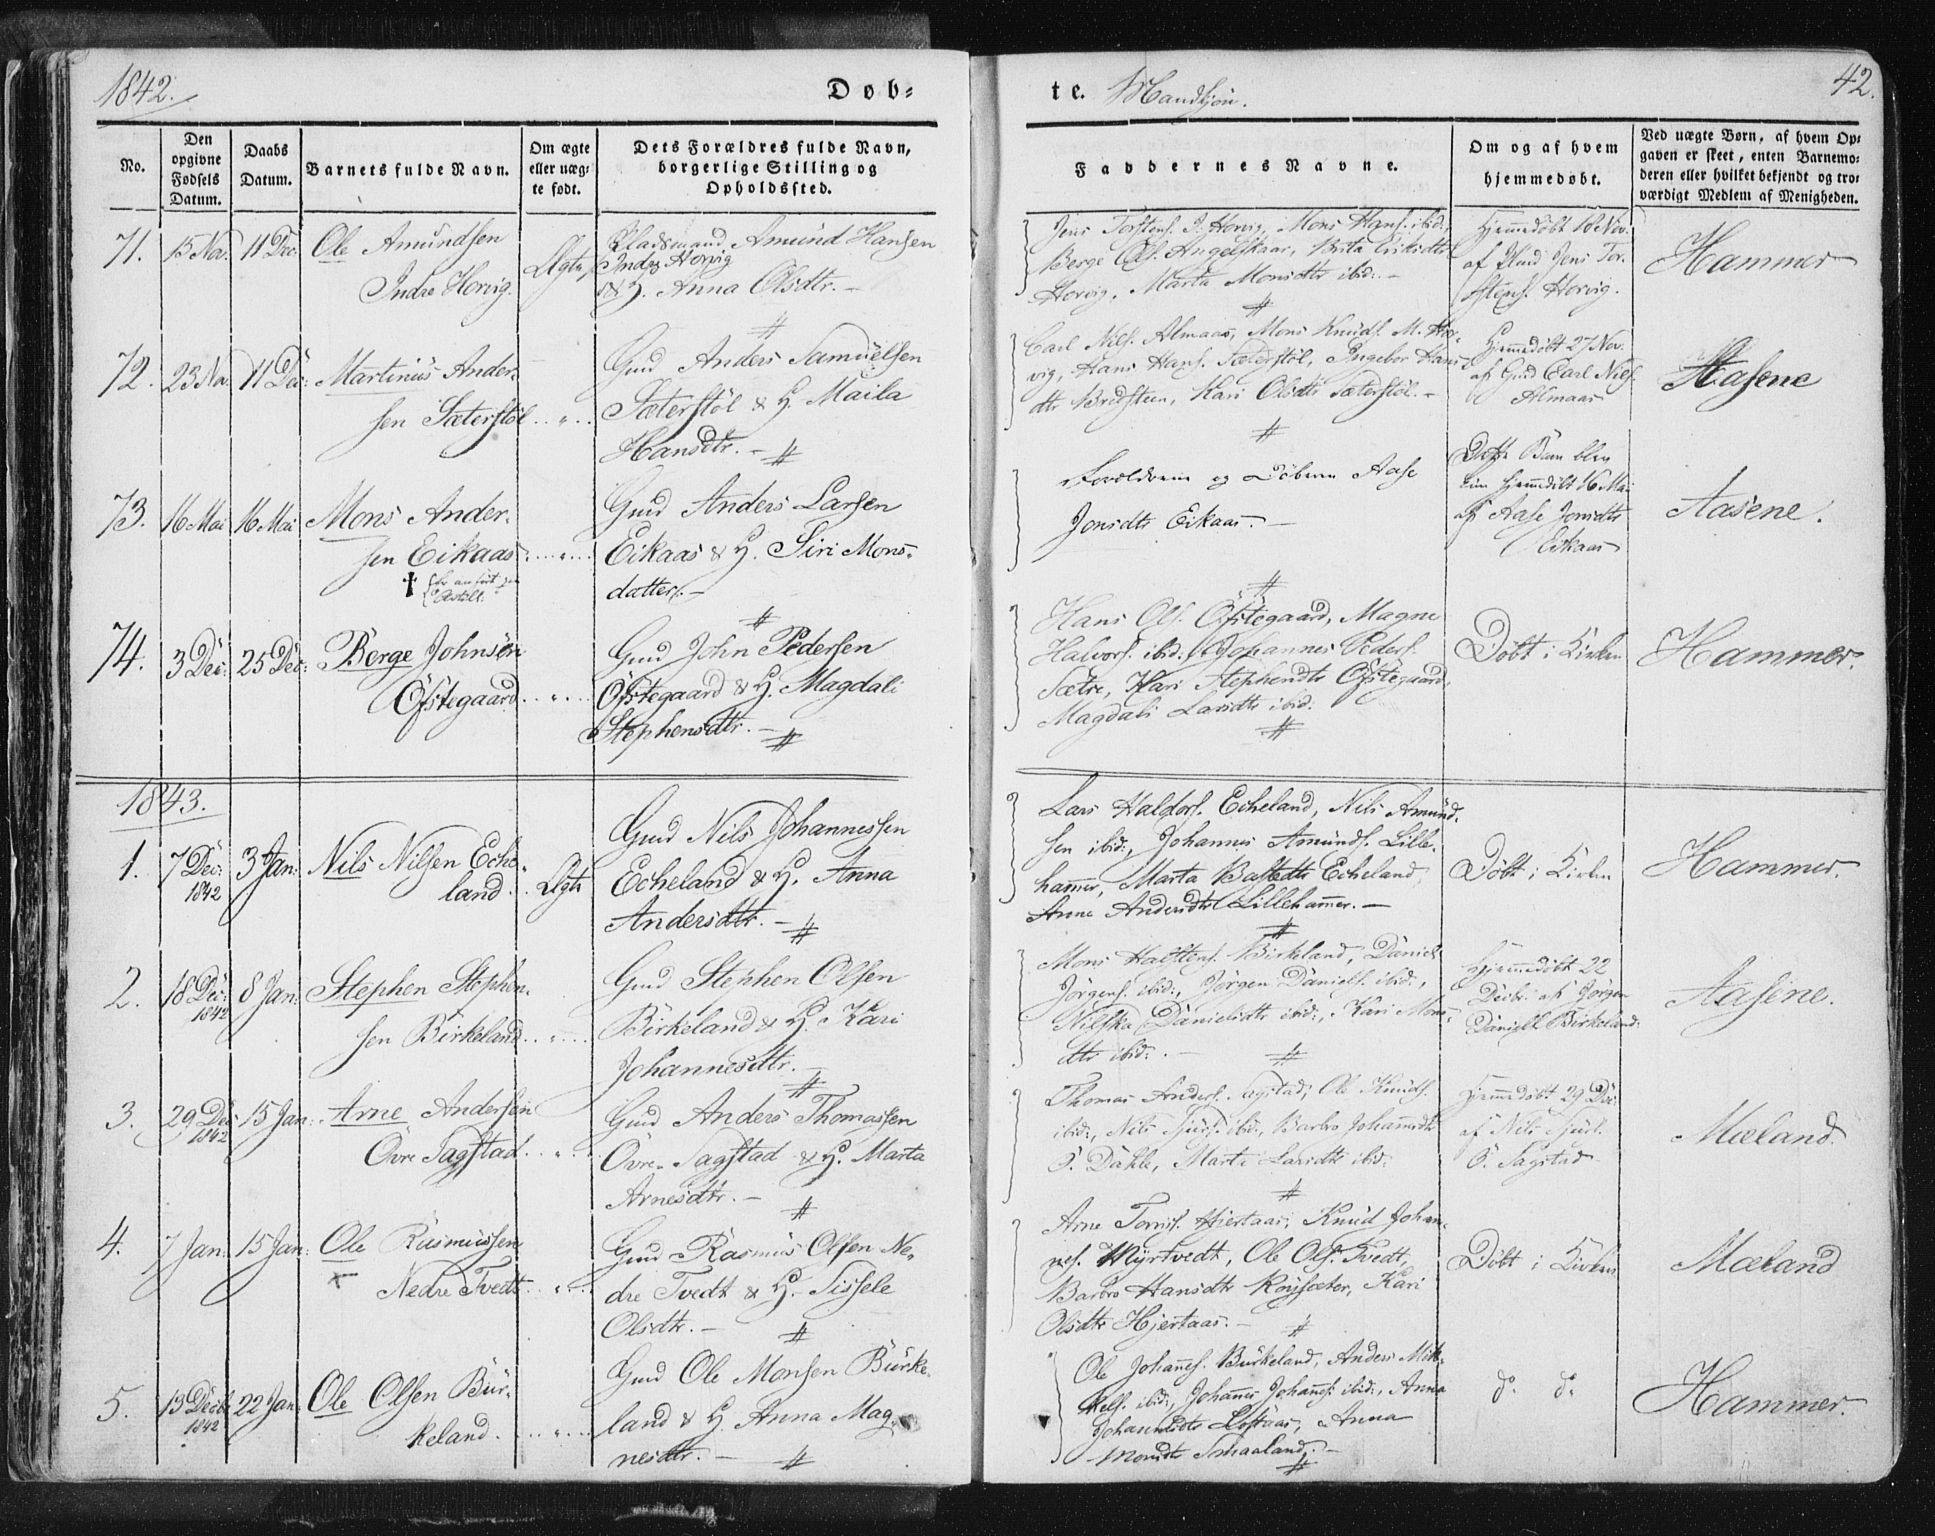 1842.
Døb=
te. Mandkjön.
42.
No.
Den opgivne Fødsels Datum.
Daabs Datum.
Barnets fulde Navn.
Om ægte eller uæg= te født.
Dets Forældres fulde Navn, borgerlige Stilling og Opholdssted.
Faddernes Navne.
Om og af hvem hjemmedøbt.
Ved uægte Børn, af hvem Op= gaven er skeet, enten Barnemo= deren eller hvilket bekjendt og tro= værdigt Medlem af Menigheden.
71. 15 Nov. 11 Dec. Ole Amundsen
Indre Horvig.
Ægte
Pladsmand Amund Hansen
Indre Horvig
& H. Anna Olsdtr. –
Jens Torstens. I. Horvig, Mons Hans. ibid.,
Berge Ols. Angelskaar, Brita Eriksdtr
Horvig, Marta Monsdtr ibid. –
Hjemmedöbt 18 Nov.
af Jens Tor.
stens. Horvig.
Hammer
72. 23 Nov. 11 Dec: Martinus Ander.
sen Sæterstöl
Gmd Anders Samuelsen
Sæterstöl & H. Maila
Hansdtr. –
Carl Nils. Almaas, Mons Knuds. M. Hor-
vig, Hans Hans. Sæterstöl, Ingebor Hans
dtr Bredsteen, Kari Olsdtr Sæterstöl. –
Hjemmedöbt 27 Nov.
af Gmd Carl Nils.
Almaas
Aasene
73. 16 Mai 16 Mai Mons Ander.
sen Eikaas
Gmd Anders Larsen
Eikaas & H. Siri Mons-
datter. –
Forældrene og Döberen Aase
Jonsdtr Eikaas. –
Dette Barn blev
hjemmedöbt 16 Mai
af Aase Jonsdtr
Eikaas
Aasene.
74. 3 Dec: 25 Dec: Berge Johnsen
Öfstegaard
Gmd John Pedersen
Öfstegaard & H. Magdali
Stephensdtr. –
Hans Ols. Öfstegaard, Magne
Halvors. ibid., Johannes Peders.
Sætre, Kari Stephensdtr Öfstegaard,
Magdali Larsdtr ibid.
Döbt i Kirken
Hammer.
1843.
1. 7 Dec: 1842 3 Jan: Nils Nilsen Eche-
land
Ægte
Gmd Nils Johannessen
Echeland & H. Anna
Andersdtr. –
Lars Haldors. Echeland, Nils Amund.
sen ibid., Johannes Amunds. Lille-
hammer, Marta Echeland,
Anne Andersdtr Lillehamer. –
Döbt i Kirken
Hammer.
2. 18 Dec: 1842 8 Jan: Stephen Stephen-
sen Birkeland
Gmd Stephen Olsen
Birkeland & H. Kari
Johannesdtr. –
Mons Halstens. Birkeland, Daniel
Jörgens. ibid., Jörgen Daniels. ibid.,
Nilska Danielsdtr ibid., Kari Mons-
dtr ibid. –
Hjemmedöbt 22
Decbr: af Jörgen
Daniels. Birkeland.
Aasene.
3. 29 Dec: 1842 15 Jan: Arne Andersen
Övre Sagstad
Gmd Anders Thomassen
Övre Sagstad & H. Marta
Arnesdtr. –
Thomas Anders. Sagstad, Ole Knuds.
ibid., Nils Sjurs. ibid., Barbro Johannesdtr
Ö. Dahle, Marta Larsdtr ibid.
Hjemmedöbt 29 Dec:
af Nils Sjurs.
Ö. Sagstad
Mæland.
4. 7 Jan: 15 Jan: Ole Rasmussen
Nedre Tvedt
Gmd Rasmus Olsen Ne-
dre Tvedt & H. Sissele
Olsdtr. –
Arne Tormis. Hiertaas, Knud Johan-
nes. Myrtvedt, Ole Ols. Tvedt,
Barbro Hansdtr Röysæter, Kari
Olsdtr Hjertaas. –
Döbt i Kirken
Mæland
5. 13 Decb: 1842 22 Jan: Ole Olsen Bür-
keland.
Gmd Ole Monsen Bürke-
land & H. Anna Mag-
nesdtr. –
Ole Johanes. Bürkeland, Anders Mik-
kels. ibid., Johannes Johanes. ibid., Anna
Johannesdtr Loftaas, Anna
Monsdtr Smaaland. –
do. do.
Hammer.